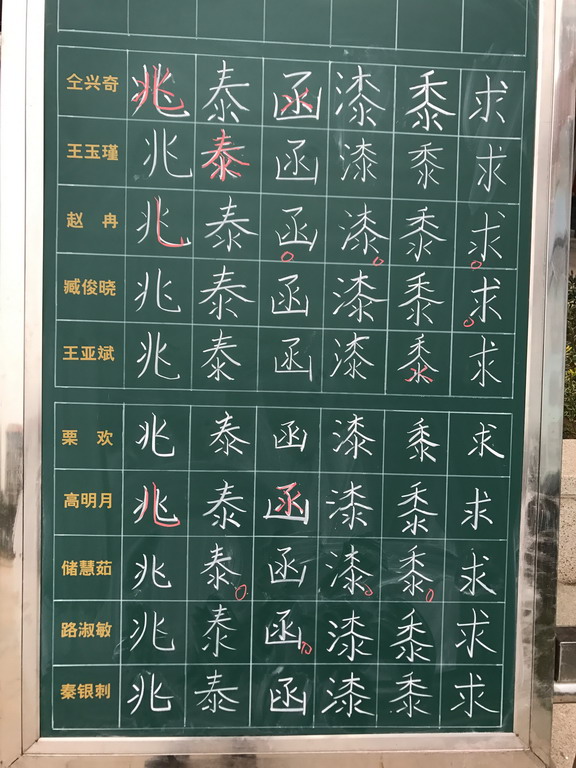 仝兴奇 兆 泰 函 漆 黍 求
王玉瑾 兆 泰 函 漆 黍 求
赵 冉 兆 泰 函 漆 黍 求
臧俊晓 兆 泰 函 漆 黍 求
王亚斌 兆 泰 函 漆 黍 求
栗 欢 兆 泰 函 漆 黍 求
高明月 兆 泰 函 漆 黍 求
储慧茹 兆 泰 函 漆 黍 求
路淑敏 兆 泰 函 漆 黍 求
秦银刺 兆 泰 函 漆 黍 求